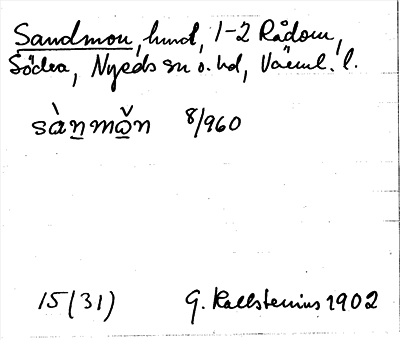 Sandmon, hmd, 1-2 Rådom,
Södra, Nyeds sn o. hd, Värml. l.
sànmǒn 8/960
15(31) G. Kallstenius 1902